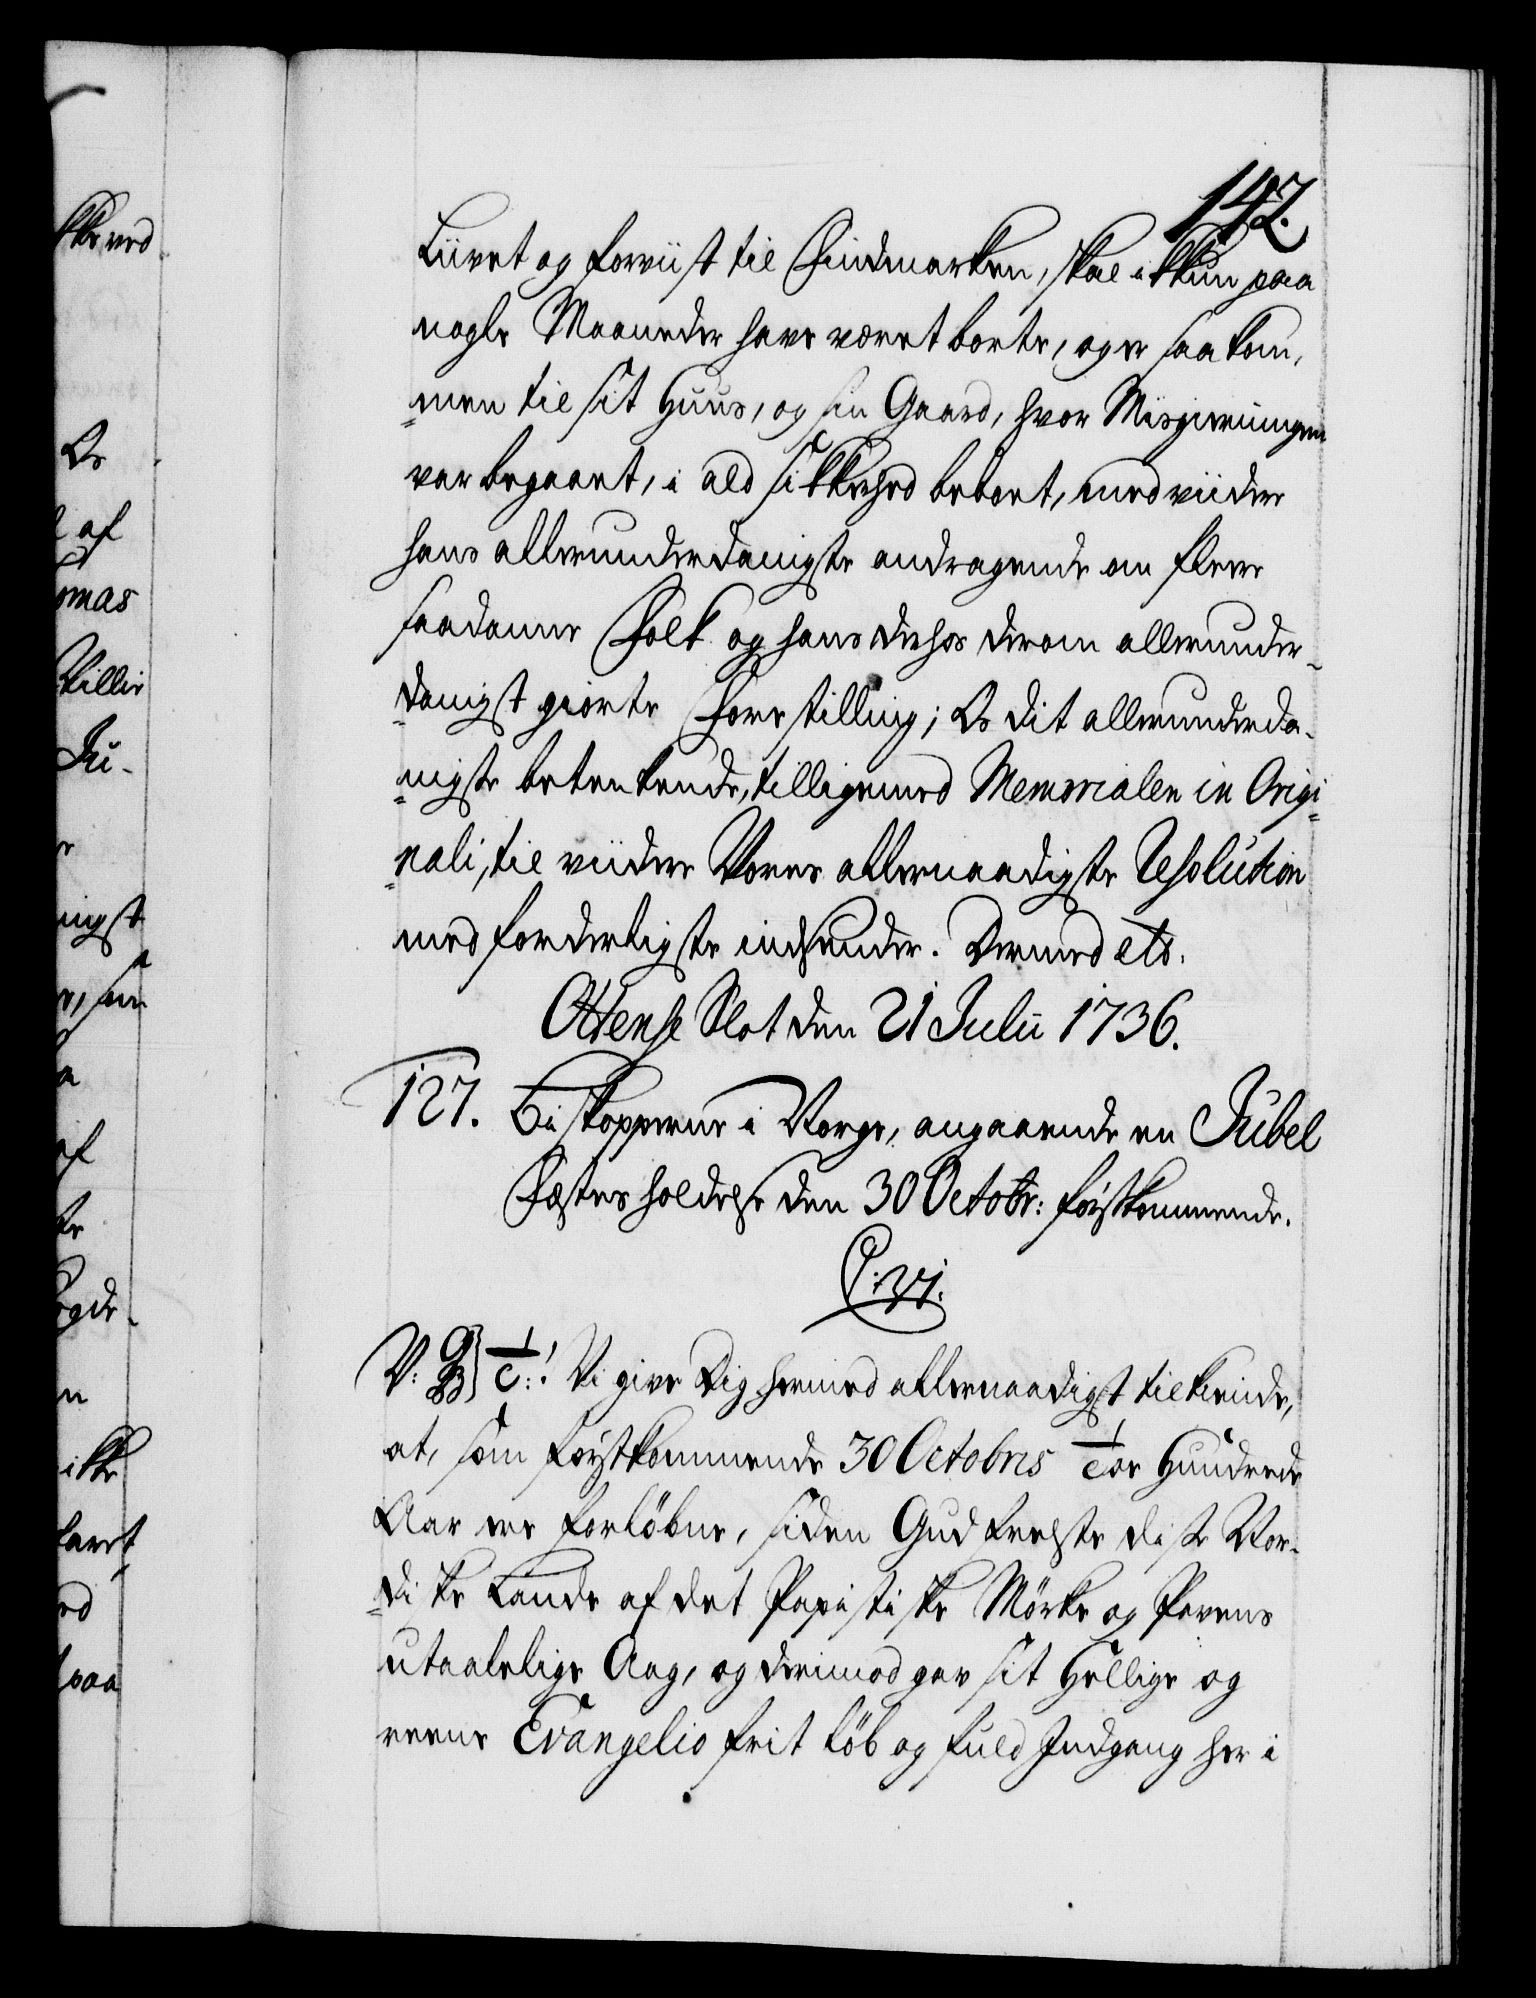 142.
Liivet og forviist til Findmarken, skal ikkun paa
nogle Maaneder have været borte, og er saa kom,
men til sit Huus, og sin Gaard, hvor Misgierningen
var begaaet, i ald Sikkerhed beboet, med viidere
hans allerunderdanigste andragende om fleere
saadanne Folk og hans derhos derom allerunder-
danigst giorte Forestilling; Os dit allerunderda-
nigste betenkende, tilligemed Memorialen in Origi-
nali, til viidere Vores allernaadigste Resolution
med forderligste indsender. Dermed etc.
Ottense Slot den 21 Julii 1736.
127. Biskopperne i Norge, angaaende en Jubel
Festes holdelse den 30 Octobr: førstkommende.
C: vj.
Vi give Dig hermed allernaadigst tilkiende,
at, som førstkommende 30 Octobris toe Hundrede
Aar ere forløbne, siden Gud frelste disse Nor-
diske Lande af det Papistiske Mörke og Pavens
utaalelige Aag, og derimod gav sit Hellige og
reene Evangelio frit løb og fuld Indgang her i
kke ved
Os
af
omas
Ju-
nigst
r, som
a
af
te
ogde-
n
ikke
ed
paa